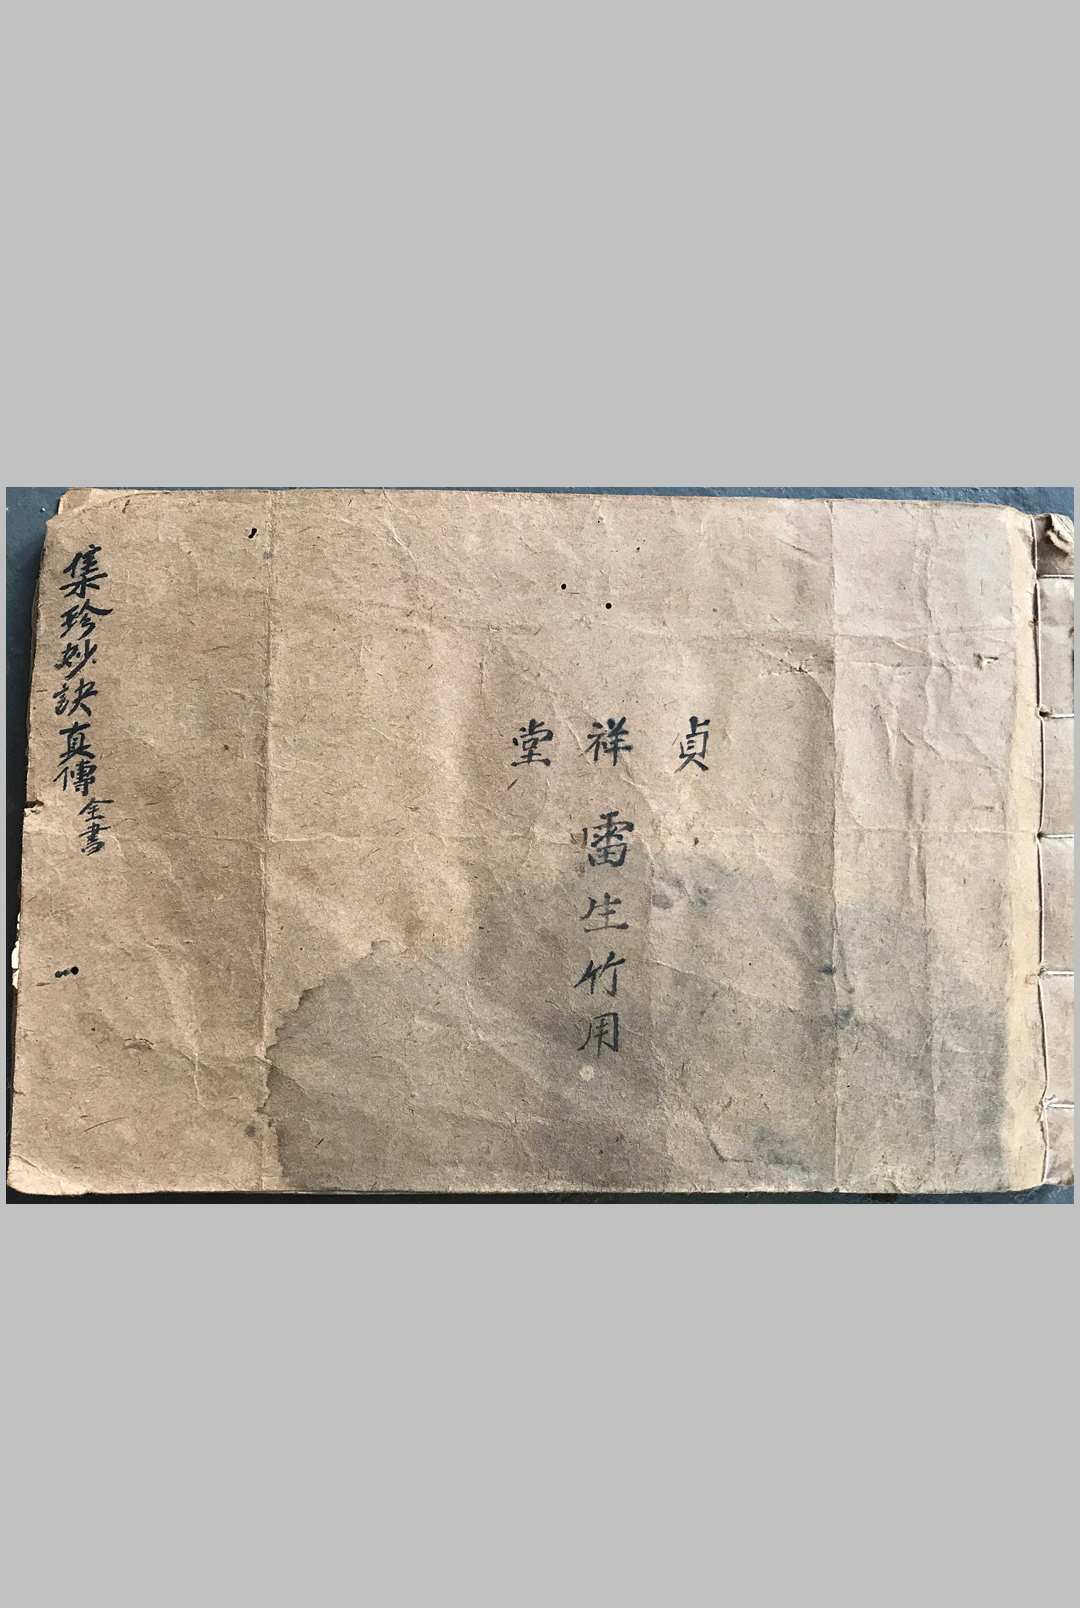 貞祥堂
雷生竹用
集珍妙訣真傳全書